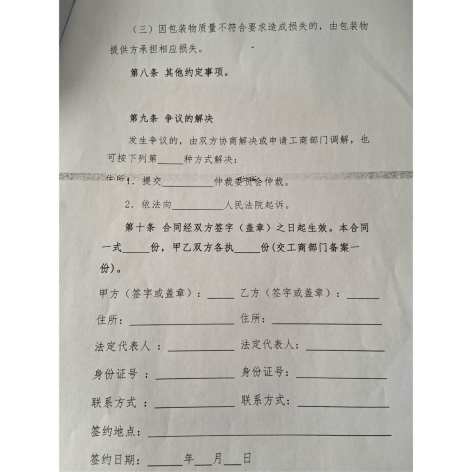 （三）因包装物质量不符合要求造成损失的，由包装物
提供方承担相应损失。
第八条 其他约定事项。
第九条 争议的解决
发生争议的，由双方协商解决或申请工商部门调解，也
可按下列第_____种方式解决：
1．提交__________仲裁委员会仲裁。
2．依法向__________人民法院起诉。
第十条 合同经双方签字（盖章）之日起生效。本合同
一式_____份，甲乙双方各执_____份(交工商部门备案一
份)。
甲方（签字或盖章）：_____ 乙方（签字或盖章）：_____
住所：_______________ 住所：_______________
法定代表人 ：__________ 法定代表人：__________
身份证号 ：__________ 身份证号：__________
联系方式 ：__________ 联系方式：__________
签约地点：______________________________
签约日期：_____年___月___日